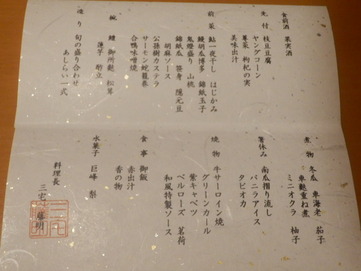 食前酒 果実酒
先付 枝豆豆腐
ヤングコーン
蓴菜 枸杞の実
美味出汁
前菜 鮎一夜干し はじかみ
鰻胡瓜博多 錦紙玉子
鬼燈盛り 山桃
錦紙瓜 笹身 隠元豆
胡麻ソース
公孫樹カステラ
サーモン蛇籠巻
合鴨味噌焼
椀 鱧 御所麩 松茸
蓮芋 酢立
造り 旬の盛り合わせ
あしらい一式
煮物 冬瓜 車海老 茄子
重ね煮
ミニオクラ 柚子
箸休み 南瓜摺り流し
バニラアイス
タピオカ
焼物 牛サーロイン焼
グリーンカール
紫キャベツ
ベルローズ 茗荷
和風特製ソース
食事 御飯
赤出汁
香の物
水菓子 巨峰 梨
料理長